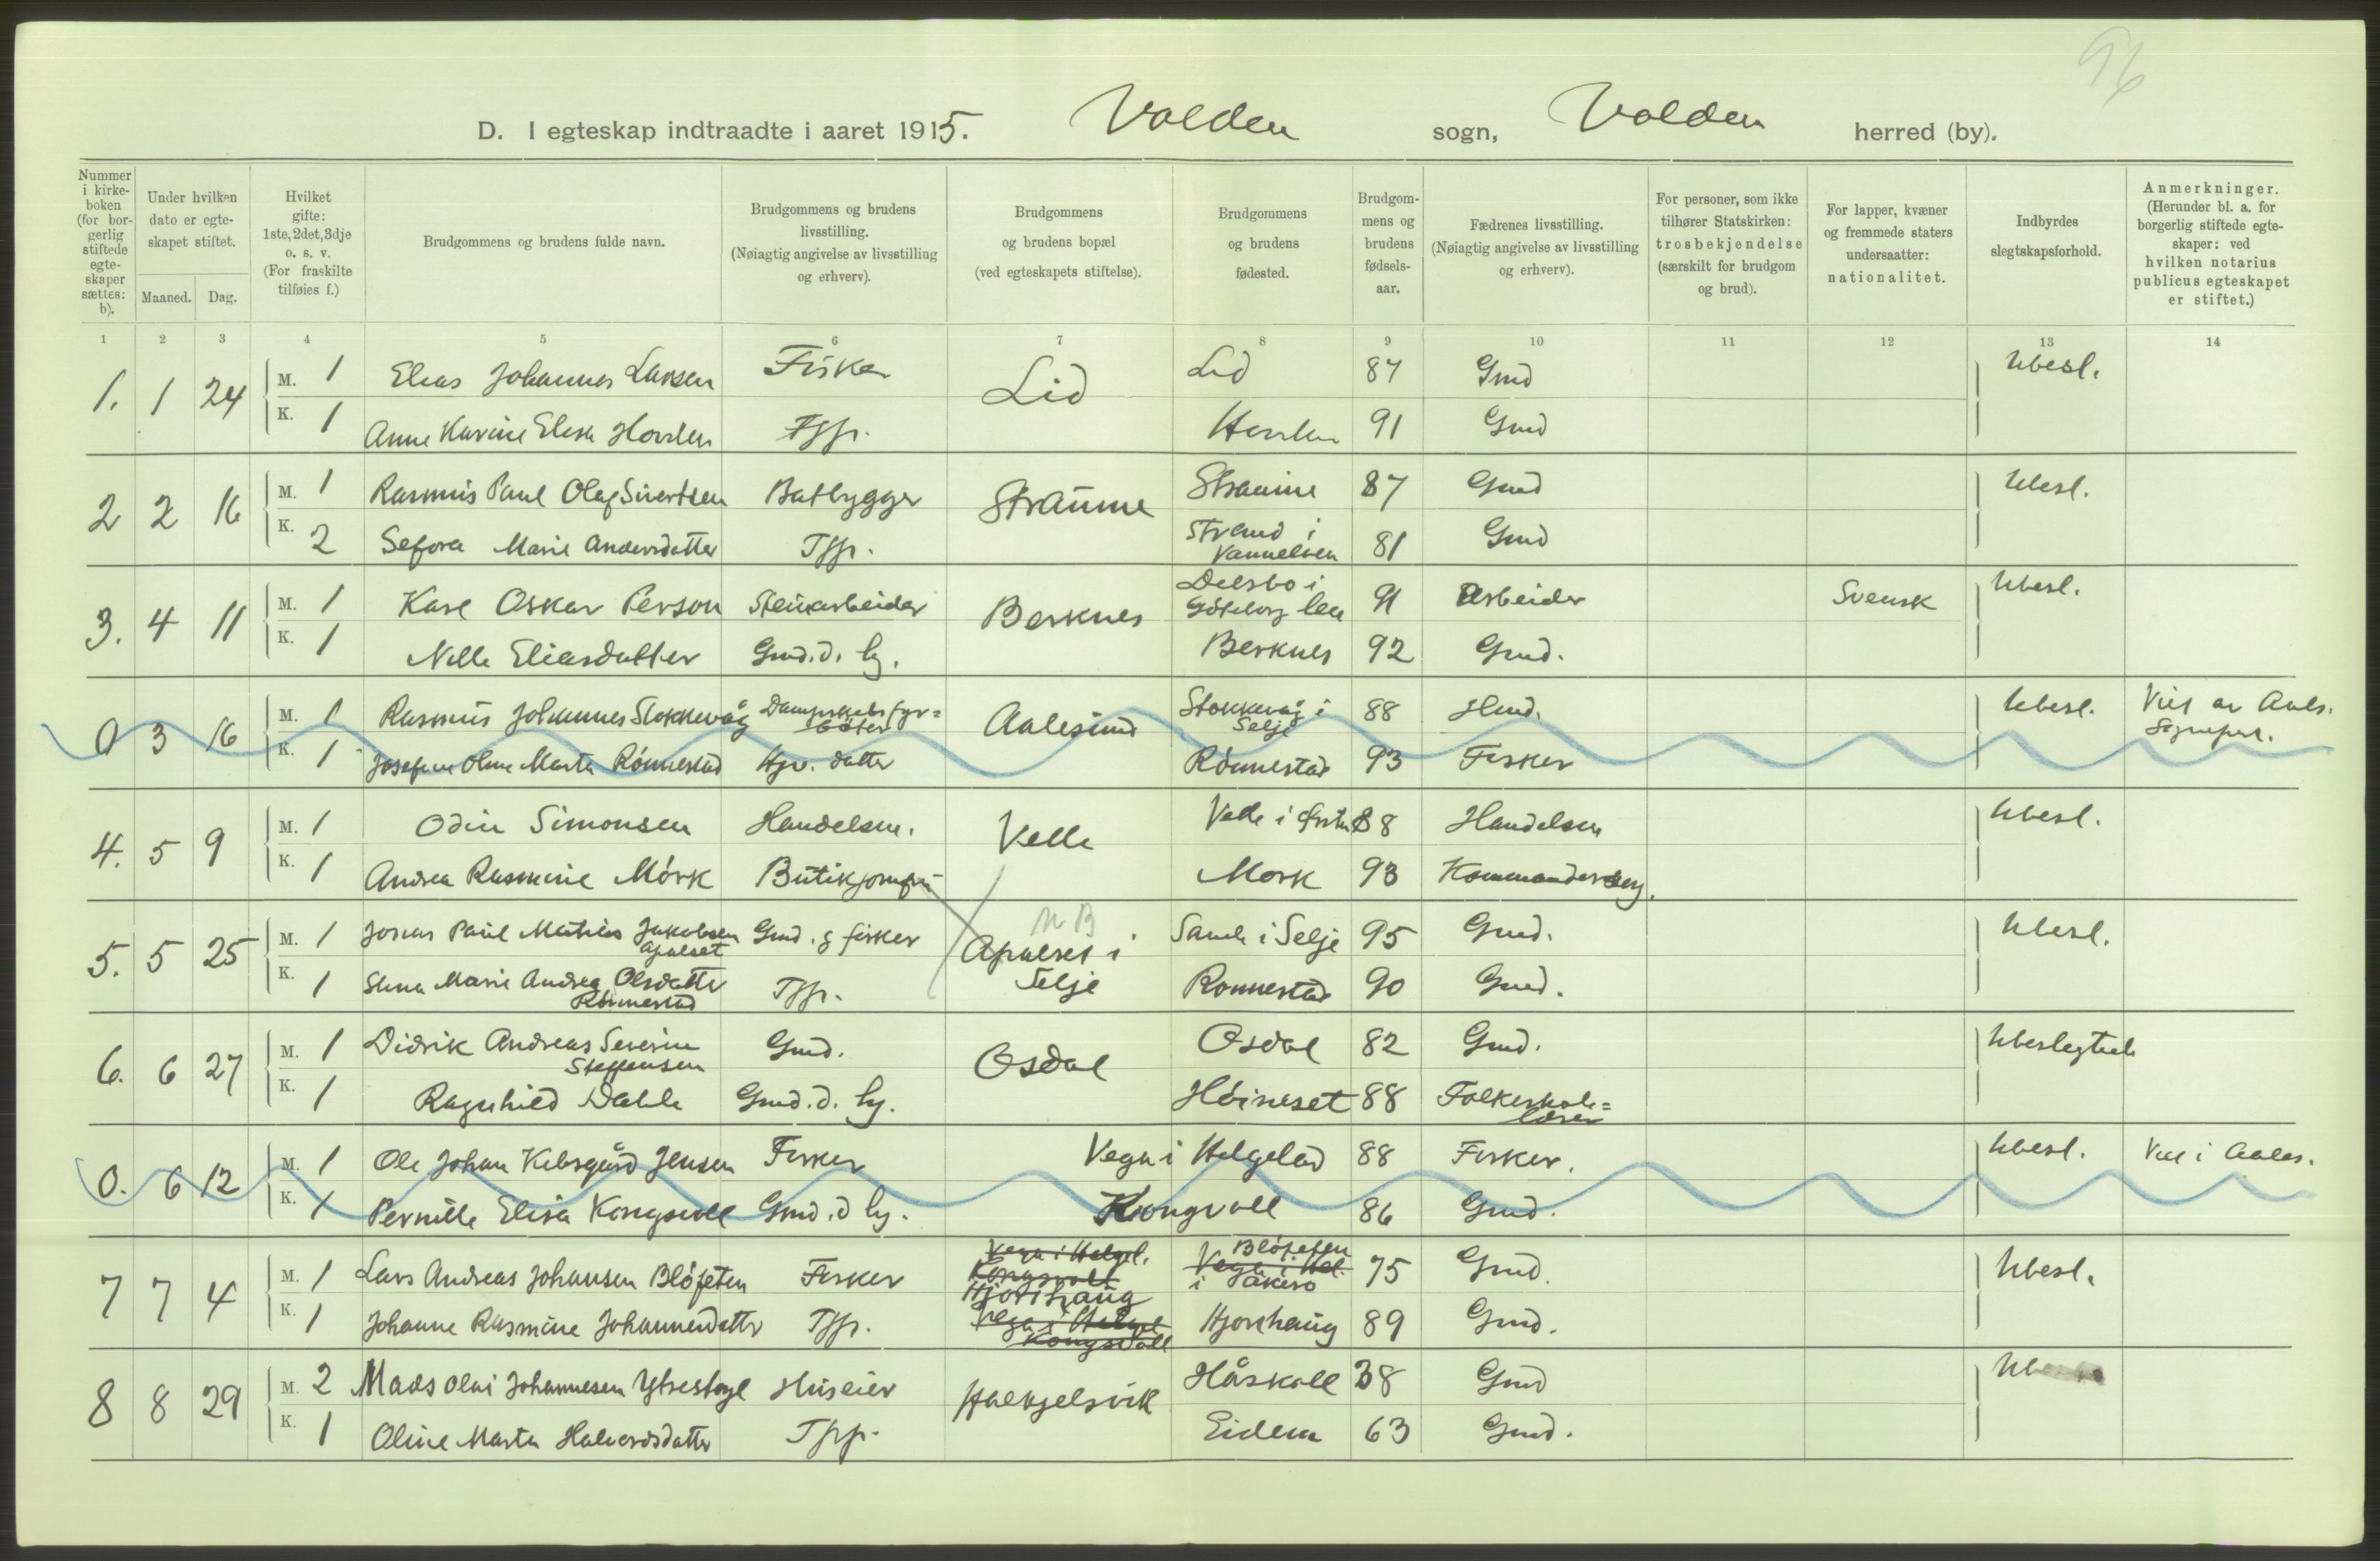 96
D. I egteskap indtraadte i aaret 1915. Volden sogn, Volden herred (by).
Nummer i kirkeboken (for borgerlig stiftede egteskaper sættes: b).
Under hvilken dato er egteskapet stiftet.
Maaned. Dag.
Hvilket gifte: 1ste, 2det, 3dje o. s. v. (For fraskilte tilføies f.)
Brudgommens og brudens fulde navn.
Brudgommens og brudens livsstilling. (Nøiagtig angivelse av livsstilling og erhverv).
Brudgommens og brudens bopæl (ved egteskapets stiftelse).
Brudgommens og brudens fødested.
Brudgommens og brudens fødselsaar.
Fædrenes livsstilling. (Nøiagtig angivelse av livsstilling og erhverv).
For personer, som ikke tilhører Statskirken: trosbekjendelse (særskilt for brudgom og brud).
For lapper, kvæner og fremmede staters undersaatter: nationalitet.
Indbyrdes slegtskapsforhold.
Anmerkninger. (Herunder bl. a. for borgerlig stiftede egteskaper: ved hvilken notarius publicus egteskapet er stiftet.)
1 2 3 4 5 6 7 8 9 10 11 12 13 14
1. 1 24 M. 1 Elias Johannes Larsen Fisker Lid Lid 87 Gmd Ubesl.
K. 1 Anne Karine Elisa Hovden Tjp. Hovden 91 Gmd
2 2 16 M. 1 Rasmus Paul Olaf Sivertsen Batbygger Straume Straume 87 Gmd Ubesl.
K. 2 Sefora Marie Andersdatter Tjp. Strand i Vannelven 81 Gmd
3. 4 11 M. 1 Karl Oskar Person Stenarbeider Berknes Delsbo i Göteborg len 91 Arbeider Svensk Ubesl.
K. 1 Nelle Eliasdatter Gmd. d. hj. Berknes 92 Gmd.
0 3 16 M. 1 Rasmus Johannes Stokkevåg Dampskibsfyrbøter Aalesund Stokkevåg i Selje 88 Hmd. Ubesl. Viet av Aales. Sognepr.
K. 1 Josefine Oline Marta Rönnestad Hjv. datter Rönnestad 93 Fisker
4. 5 9 M. 1 Odin Simonsen Handelsm. Velle Velle i 88 Handelsm Ubesl.
K. 1 Andrea Rasmine Mörk Butikjomfru Mork 93 Kommandersерg.
5. 5 25 M. 1 Josias Paul Mathias Jakobsen Apalset Gmd. g fisker NB Apalset i Selje i Selje 95 Gmd. Ubesl.
K. 1 Marie Andrea Olsdatter Rönnestad Tjp. Ronnestad 90 Gmd.
6. 6 27 M. 1 Didrik Andreas Severin Steffensen Gmd. Osdal Osdal 82 Gmd. Ubeslegtede
K. 1 Ragnhild Dahle Gmd. d. hj. Höineset 88 Folkeskolelærer
0. 6 12 M. 1 Ole Johan Kilsgård Jensen Fisker Vega i Helgelad 88 Fisker. Ubesl. Viet i Aales.
K. 1 Pernille Elisa Kongsvoll Gmd. d hj. Kongvoll 86 Gmd.
7 7 4 M. 1 Lars Andreas Johansen Blöfeten Fisker Vega i Helgel. Kongsvoll Hjorthaug Blöfeten Vega i Hel. i Åkerö 75 Gmd. Ubesl.
K. 1 Johanne Rasmine Johannesdatter Tjp. Vega i Helgel Kongsvoll Hjorthaug 89 Gmd.
8 8 29 M. 2 Mads Olai Johannesen Ytrestøyl Huseier Halkjelsvik Håskoll 38 Gmd
K. 1 Oline Marta Halvorsdatter Tjp. Eidem 63 Gmd.